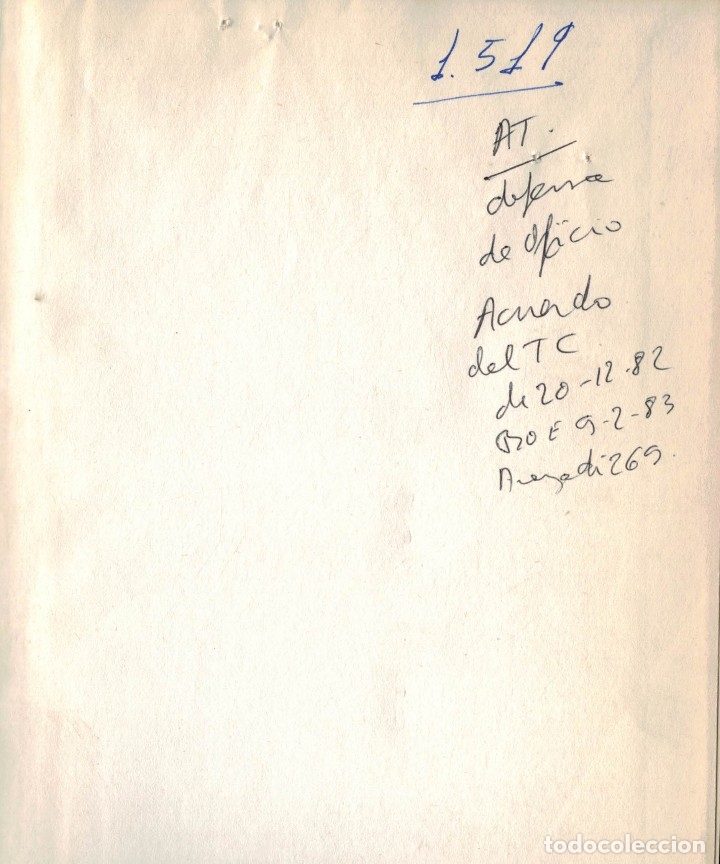 1.519
AT.
defensa
de Oficio
Acuerdo
del TC
de 20-12-82
BOE 9-2-83
Aranzadi 269.
todocoleccion